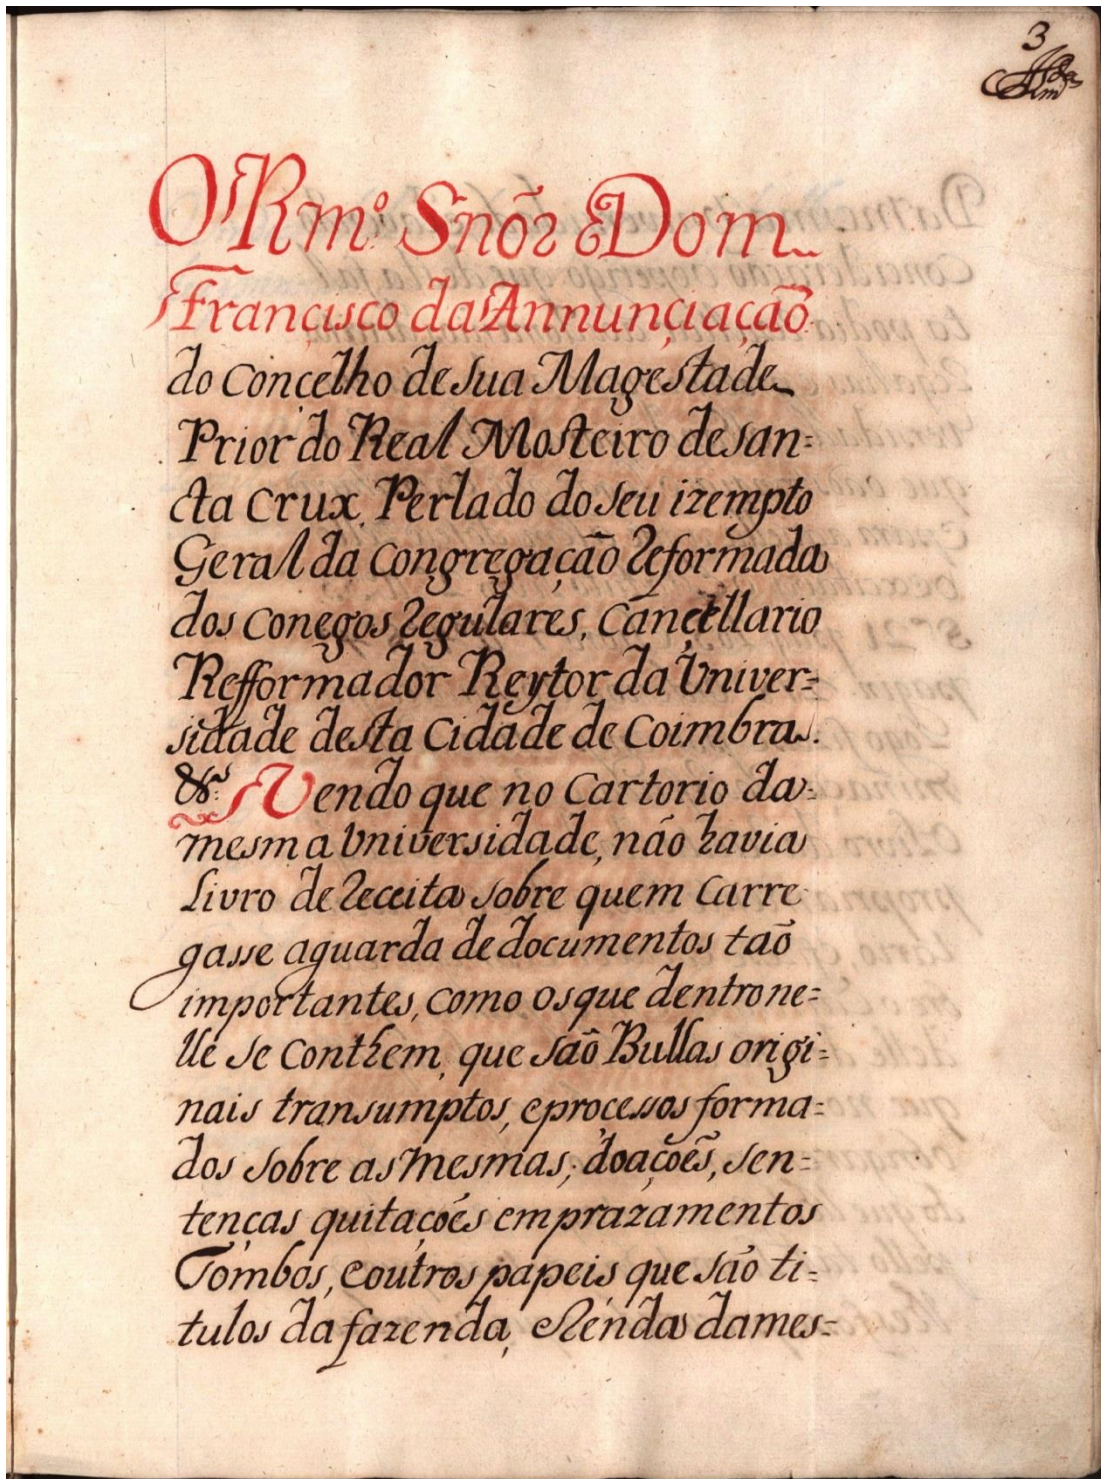 3
O R.mo Snõr Dom
Françisco da Annunçiação
do Conçelho de sua Magestade
Prior do Real Mosteiro de san=
cta Crux, Perlado do seu izempto
Geral da Congregação Reformada
dos Conegos Regulares, Cancellario
Refformador Reytor da Univer=
sidade desta Cidade de Coimbra.
&.ª Vendo que no Cartorio da=
mesma Universidade, não havia
Livro de Receita sobre quem Carre
gasse aguarda de documentos tão
importantes, como os que dentro ne=
lle se Conthem, que são Bullas origi=
nais transumptos, e processos forma=
dos sobre as mesmas, doações, sen=
tenças quitações emprazamentos
Tombos, e outros papeis que são ti=
tulos da fazenda, e Renda da mes=